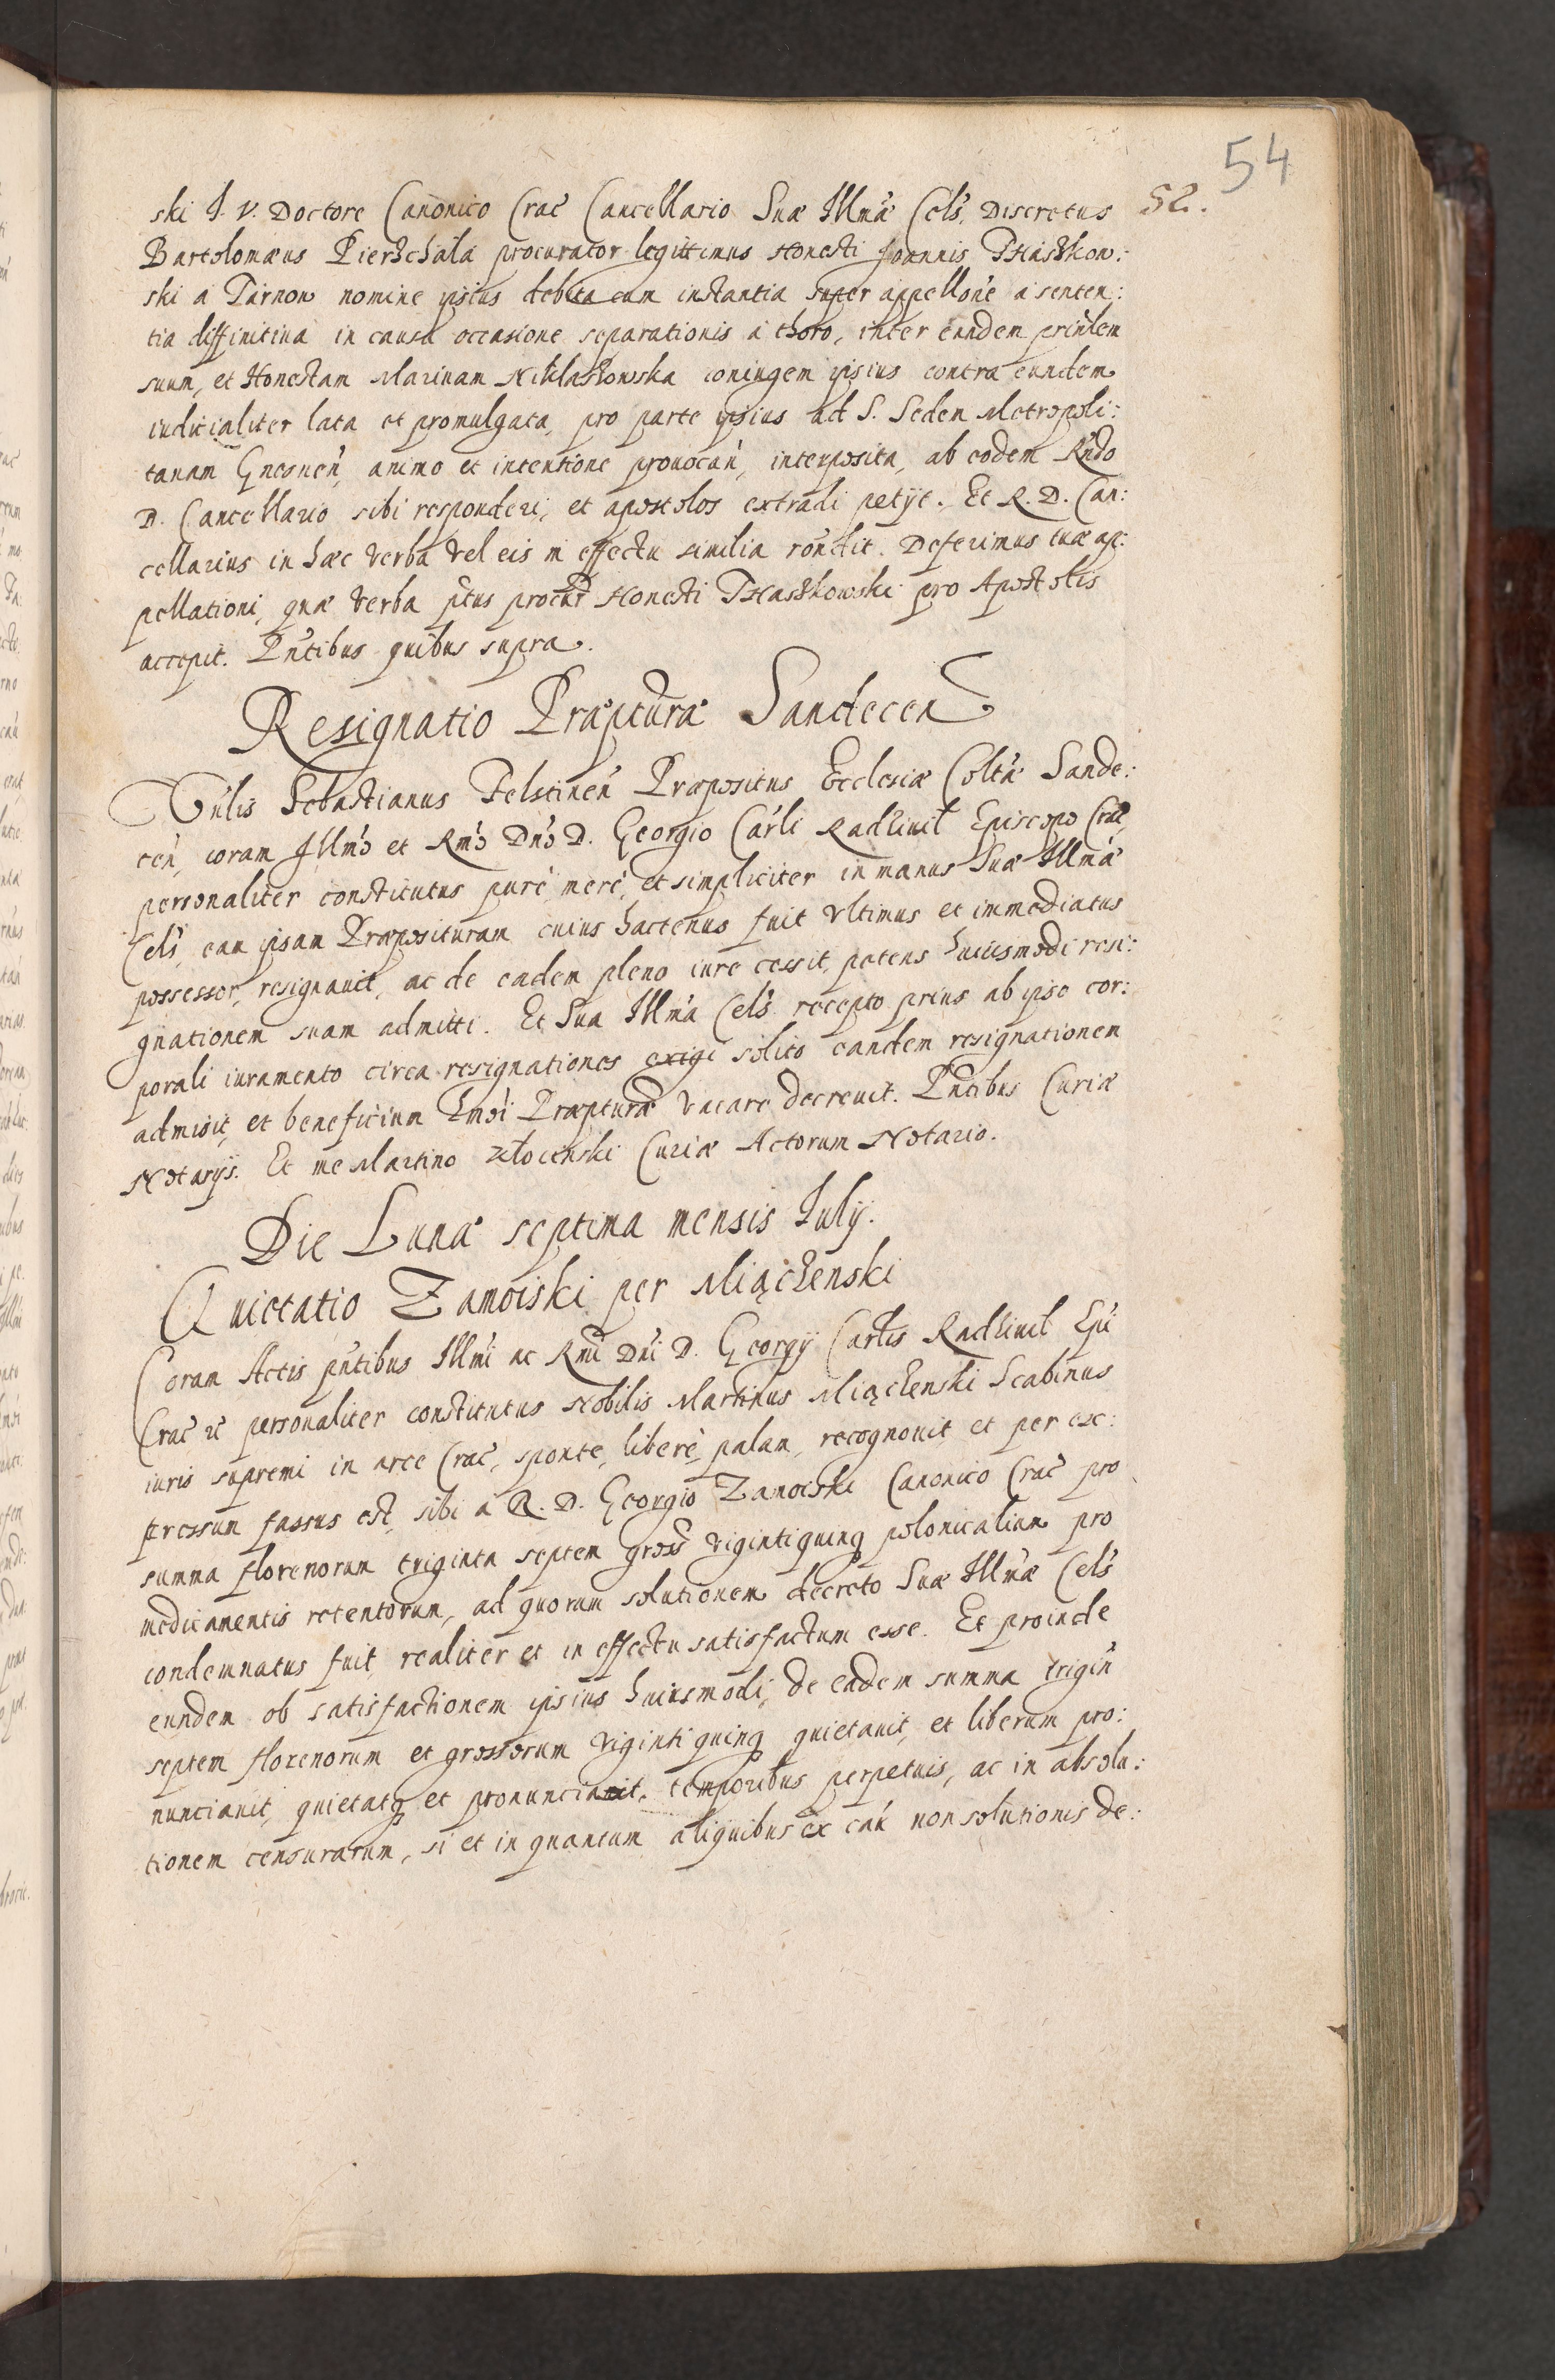 54
52.
ski J. V. Doctore Canonico Crac̃ Cancellario Suæ Illmæ̃ Cels̃, Discretus
Bartolomæus Pierzchała procurator legittimus Honesti Joannis
ski a Tarnow nomine ipsius debita cum instantia super appellõne a senten:
tia diffinitiva in causa occasione separationis a thoro, inter eundem prin̄lem
suum, et Honestam Marinam coniugem ipsius contra eundem
iudicialiter lata et promulgata, pro parte ipsius ad S. Sedem Metropoli:
tanam Gnesneñ, animo et intentione prouocañ, interposita, ab eodem Rñdo
D. Cancellario sibi responderi, et apostolos extradi petijt. Et R. D. Can:
cellarius in hæc verba vel eis in effectu similia rõndit. Deferimus tuæ ap:
pellationi, quæ verba p̃tus procur̃ Honesti pro Apostolis
accepit. Pñtibus quibus supra.
Resignatio Præpturæ Sandeceñ
Vñlis Sebastianus Felstineñ Præpositus Ecclesiæ Colltæ̃ Sande:
ceñ, coram Illmõ et Rmõ Dnõ D. Georgio Carli Radziuil Episcopo Crac̃,
personaliter constitutus purè, merè, et simpliciter in manus Suæ Illmæ̃
Cels̃, eam ipsam Præposituram cuius hactenus fuit vltimus et immediatus
possessor, resignauit, ac de eadem pleno iure cessit, petens huiusmodi resi:
gnationem suam admitti. Et Sua Illmã Cels̃ recepto prius ab ipso cor:
porali iuramento circa resignationes exigi solito eandem resignationem
admisit, et beneficium hmõi Præpturæ vacare decreuit. Pñtibus Curiæ
Notarijs. Et me Martino Złocenski Curiæ Actorum Notario.
Die Lunæ septima mensis Julij.
Quietatio Zamoiski per Miączenski
Coram Actis pñtibus Illmĩ ac Rmĩ Dnĩ D. Georgij Carlis Radziuil Epĩ
Crac̃ &c̃ personaliter constitutus Nobilis Martinus Miączenski Scabinus
iuris supremi in arce Crac̃, sponte, liberè, palam, recognouit et per ex:
pressum fassus est, sibi a R. D. Georgio Zamoiski Canonico Crac̃ pro
summa florenorum triginta septem gross̃ vigintiquinq̃ polonicalium pro
medicamentis retentorum, ad quorum solutionem decreto Suæ Illmæ̃ Cels̃
condemnatus fuit, realiter et in effectu satisfactum esse. Et proinde
eundem ob satisfactionem ipsius huiusmodi, de eadem summa trigiñ
septem florenorum et grossorum viginti quinq̃ quietauit, et liberum pro:
nunciauit, quietatq̃ et pronunciat, temporibus perpetuis, ac in absolu:
tionem censurarum, si et in quantum aliquibus ex cau͂ non solutionis de: